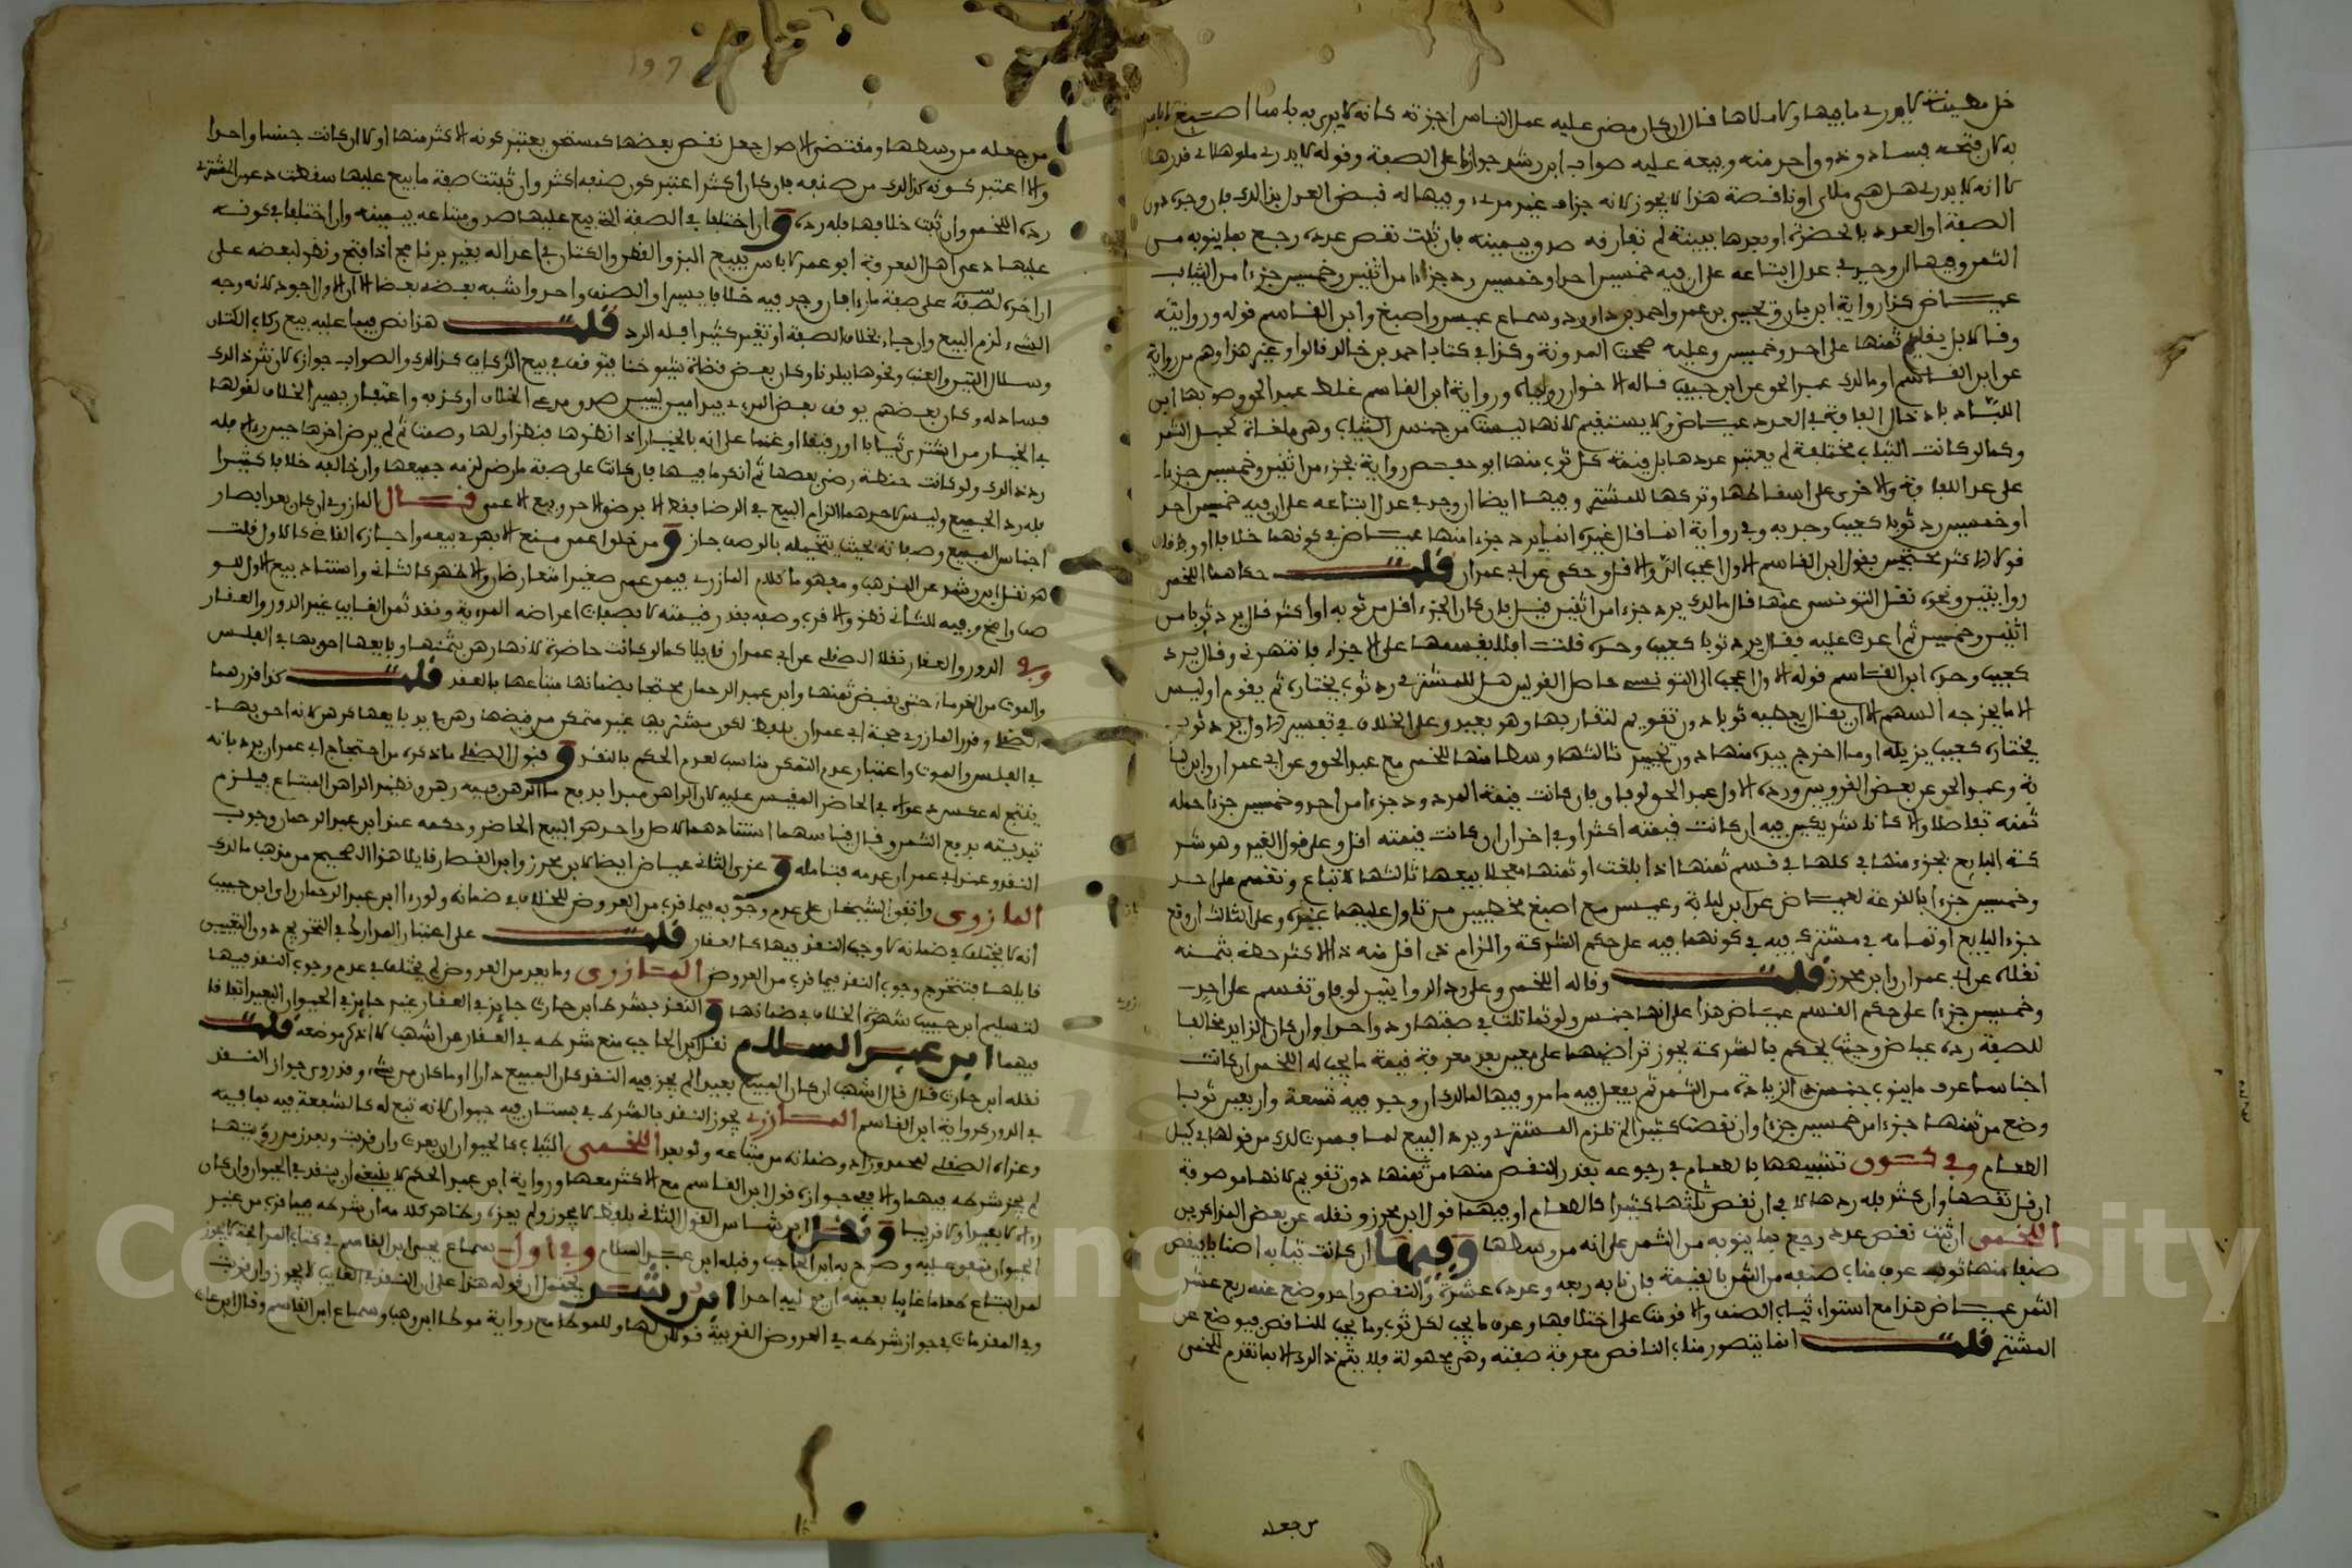 به كان فتحه فسادا وذو واحر منه وبيعه عليه صواب ابن رشد جوازها على الصفة وقوله لا يدري ملوها لا في قدرها
لا انه لا يدري هل هي ملأى او ناقصة هذا لا يجوز لانه جزاف غير مرءي وفيها له قبض العدل بذلك فان وجده دون
الصفة او العدد بالحضرة او بعدها ببينة لم تفارقه صدق بيمينه فان ثبت نقص عدده رجع بما ينوبه من
الثمن وفيها ان وجد في عدل ابتاعه على ان فيه خمسين احدا وخمسين رد جزءا من اثنين وخمسين جزءا من الثياب
عياض كذا رواية ابن باز ويحيى بن عمر واحمد بن داود وسماع عيسى واصبغ وابن القاسم قوله وروايته
وقالا بل يقسم ثمنها على احد وخمسين وعليه صححت المدونة وكذا في كتاب احمد بن خالد قالوا وغير هذا وهم من رواية
عن ابن القاسم او مالك عبد الحق عن ابن حبيب قاله الاخوان رواية ورواية ابن القاسم غلط عبد الحق وصوبها ابن
اللباد بادخال الفاقة في العدد عياض ولا يستقيم لانها ليست من جنس الثياب وهي ملغاة تحمل الثمن
وكما لو كانت الثياب مختلفة لم يعتبر عددها بل قيمة كل ثوب منها ابو حفص رواية بجزء من اثنين وخمسين جزءا
على عد اللفافة والاخرى على اسقاطها وتركها للمشتري وفيها ايضا ان وجد في عدل ابتاعه على ان فيه خمسين احد
او خمسين رد ثوبا كعيب وجد به وفي رواية انما قال غيره انما يرد جزءا منها عياض في كونهما خلافا او وفاقا
قولا الاكثر محتجين بقول ابن القاسم الاول اعجب الي والاقل وحكي عن ابي عمران قلت حكاهما اللخمي
روايتين ونحوه نقل التونسي عنها قال مالك يرد جزءا من اثنين قيل فان كان الجزء اقل من ثوب او اكثر قال يرد ثوبا من
اثنين وخمسين ثم اعدت عليه فقال يرد ثوبا كعيب وجده قلت افلا يقسمها على الاجزاء فانتهرني وقال يرد
كعيب وجده ابن القاسم قوله الاول اعجب الي التونسي حاصل القولين هل للمشتري رد ثوب يختاره ثم يقوم او ليس
الا ما يخرجه السهم الا ان يقال يعطيه ثوبا دون تقويم لتقاربها وهو بعيد وعلى الخلاف في تفسير الاول يرد ثوب
يختاره كعيب يزيله او ما اخرج بيده منها دون تخيير ثالثها وسطا منها للخمي مع عبد الحق وعن ابي عمران وابن لبا
بة وعبد الحق عن بعض القرويين ورده الاول عبد الحق
ثمنه تفاضلا والا كانا شريكين فيه ان كانت قيمته اكثر وفي اخران ان كانت قيمته اقل وعلى قول الغير وهو شر
كة البايع بجزء منها في كلها في قسم ثمنها اذا بلغت او ثمنها معجلا ببيعها ثالثها لا تباع وتقسم على احد
وخمسين جزءا بالقرعة لعياض عن ابن لبابة وعيسى مع اصبغ مخطيين من تاول عليهما غيره وعلى الثالث ان وقع
جزء البايع او تمامه في مشترك فيه في كونهما فيه على حكم الشركة والزام ذي اقل منه ذا الاكثر حظه بثمنه
نقلاه عن ابي عمران وابن محرز قلت وقاله اللخمي وعلى رد الروايتين لوفاق وتقسم على احد
وخمسين جزءا على حكم القسم عياض هذا على انها جنس ولو تماثلت في صفتها رد واحدا وان كان الزايد مخالفا
للصفة رده عياض وحيث يحكم بالشركة يجوز تراضيهما على معين بعد معرفة قيمة ما يجب له اللخمي ان كانت
اجناسا عرف ما ينوب جنس ذي الزيادة من الثمن ثم يفعل فيه ما مر وفيها لمالك ان وجد فيه تسعة واربعين ثوبا
وضع من ثمنها جزءا من خمسين جزءا وان نقصت كثيرا لم تلزم المشتري ويرد البيع
الطعام وفي كون تشبيهها بالطعام في رجوعه بقدر النقص منها من ثمنها دون تقويم لانها موصوفة
ان قل نقصها وان كثر فله ردها لا في ان نقص ثلثها كثيرا كالطعام او فيهما قول ابن محرز ونقله عن بعض المذاكرين
اللخمي ان ثبت نقص عدد رجع بما ينوبه من الثمن على انه من وسطها وفيها ان كانت ثيابه اصنافا بنقص
صنفا منها ثوب عرف مناب صنفه من الثمن بالقيمة فان نابه ربعه وعدده عشرة والنقص واحد وضع عنه ربع عشر
الثمن عياض هذا مع استواء ثياب الصنف والا قومت على اختلافها وعرف ما يجب لكل ثوب وما يجب للناقص فيوضع عن
المشتري قلت انما يتصور مناب الناقص معرفة صفته وهي مجهولة فلا يتم ذلك الا بما تقدم للخمي
من جعله
من جعله من وسطها ومقتضى الاصول جعل نقص بعضها كمستحق يعتبر كونه الاكثر منها اولا ان كانت جنسا واحدا
والا اعتبر كونه كذلك من صنفه فان كان اكثر اعتبر كون صنفه اكثر وان ثبتت صفة ما بيع عليها سقطت دعوى المشتري
رده اللخمي وان ثبت خلافها فله رده وان اختلفا في الصفة التي بيع عليها صدق مبتاعه بيمينه وان اختلفا في كونه
عليها دعي اهل المعرفة ابو عمر لا باس ببيع البز والقطن والكتان في اعداله بغير برنامج اذا فتح ونظر لبعضه على
ان اخره لصفة على صفة ما رءا فان وجد فيه خلافا يسيرا والصنف واحد واشبه بعضه بعضا الا ان الاول اجود لانه وجه
الشيء لزم البيع وان جاء بخلاف الصفة او تغير كثيرا فله الرد قلت هذا نص فيما عليه بيع ركاب الكتان
وسلال التين والعنب ونحوها ببلدنا وكان بعض قضاة شيوخنا يتوقف في بيع الركاب كذلك والصواب جوازه لان نثر ذلك
فساد له
في الخيار من اشترى ثيابا او رقيقا او غنما على انه بالخيار اذا نظرها فنظر اولها وصمت ثم لم يرض اخرها حين رءاه فله
رد ذلك ولو كانت حنطة رضي بعضها ثم انكر ما فيها فان كانت على صفة ما رضي لزمه جميعها وان خالفه خلافا كثيرا
فله رد الجميع وليس لاحدهما الزام البيع في الرضا فقط الا برضى الاخر وبيع الاعمى قال المازري ان كان بعد ابصار
اجناس المبيع وصفاته بحيث يتخيله بالوصف جاز ومن خلق اعمى منع الابهري بيعه واجازه القاضي كالاول قلت
هو نقل ابن رشد عن المذهب ومفهوم كلام المازري فيمن عمي صغيرا متعارضان والاظهر كالثاني واستناد بيع الاول للو
صف واضح وفيه للثاني نظر والاقرب وصفه بقدر قيمته لا بصفات اعراضه المرءية ونقد ثمن الغايب غير الدور والعقار
وفي الدور والعقار نقلا الصقلي عن ابي عمران قايلا كما لو كانت حاضرة لانها رهن بثمنها وبايعها احق بها في الفلس
والموت من الغرماء حتى يقبض ثمنها وابن عبد الرحمان محتجا بضمانها مبتاعها بالعقد قلت كذا قررهما
الصقلي وقرر المازري حجة ابي عمران بلفظ لكون مشتريها غير متمكن من قبضها وهي بيد بايعها كرهن لانه احق بها
في الفلس والموت واعتبار عدم التمكن مناسب لعدم الحكم بالنقد وقبول الصقلي ما ذكره من احتجاج ابي عمران يرد بانه
ينتج له عكس دعواه في الحاضر المقيس عليه لان الراهن مبدا بدفع ما الرهن فيه رهن ونظير الراهن المبتاع فيلزم
تبديته بدفع الثمن وقال قياسهما استنادهما لاصل واحد هو البيع الحاضر وحكمه عند ابن عبد الرحمان وجوب
النقد وعند ابي عمران عدمه فتامله وعزى الثاني عياض ايضا لابن محرز وابن القصار قايلا هذا الصحيح من مذهب مالك
المازري واتفق الشيخان على عدم وجوبه فيما قرب من العروض للخلاف في ضمانه ولو رءا ابن عبد الرحمان راي ابن حبيب
انه لا يختلف في ضمانه لاوجب النقد فيها كالعقار قلت على اعتبار المدارك في التخريج دون التعيين
قابلها فتتخرج وجوب النقد فيما قرب من العروض المازري وما بعد من العروض لم يختلف في عدم وجوب النقد فيها
لتسليم ابن حبيب شهرة الخلاف في ضمانها والنقد بشرط ابن حارث جايز في العقار غير جايز في الحيوان البعيد اتفاقا
فيهما ابن عبد السلام نقل ابن الحاجب منع شرطه في العقار عن اشهب لا اذكر موضعه قلت
نقله ابن حارث قال قال اشهب ان كان المبيع بعيدا لم يجز فيه النقد كان المبيع دارا او ما كان من شيء وقد روي جواز النقد
في الدور كرواية ابن القاسم المازري يجوز النقد بالشرط في بستان فيه حيوان لانه تبع له كالشفعة فيه بما فيه
وعزاه الصقلي لمحمد وزاد وضمانه من مبتاعه ولو بعد اللخمي الثياب كالحيوان ان بعدت وان قربت وبعد زمن رؤيتها
لم يجز شرطه فيهما والا ففي جوازه قول ابن القاسم مع الاكثر معها ورواية ابن عبد الحكم لا ينبغي ان ينقد في الحيوان وان كان
رءاه لا بعيدا ولا قريبا ونقل ابن شاس القول الثاني بلفظ لا يجوز ولم يعزه وظاهر كلامه ان شرطه فيما قرب من غير
الحيوان متفق عليه وصرح به ابن الحاجب وقبله ابن عبد السلام وفي اول سماع يحيى ابن القاسم في كتاب المرابحة لا يجوز
لمن ابتاع طعاما غايبا بعينه ان يولي احدا ابن رشد يحتمل ان قوله هذا على ان النقد في الغايب لا يجوز وان قربت
وفي المقدمات في جواز شرطه في العروض القريبة قولان لها وللموطا مع رواية موطا ابن وهب وسماع ابن القاسم وقال ابن